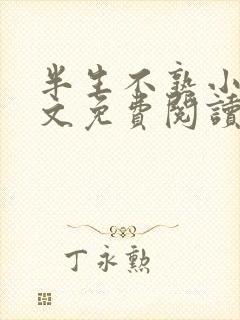 半生不熟小
文免費閱讀
丁永勲